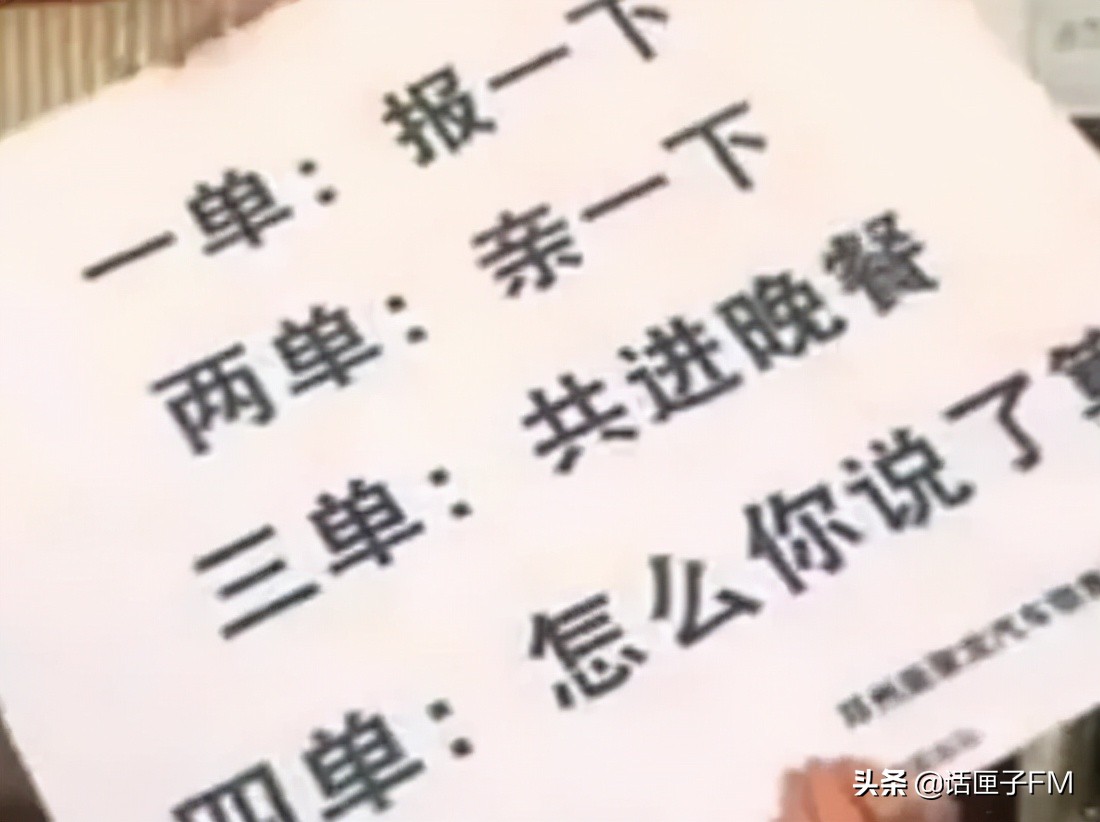 一单：报一下
两单：亲一下
三单：共进晚餐
四单：怎么你说了算
头条 @话匣子FM